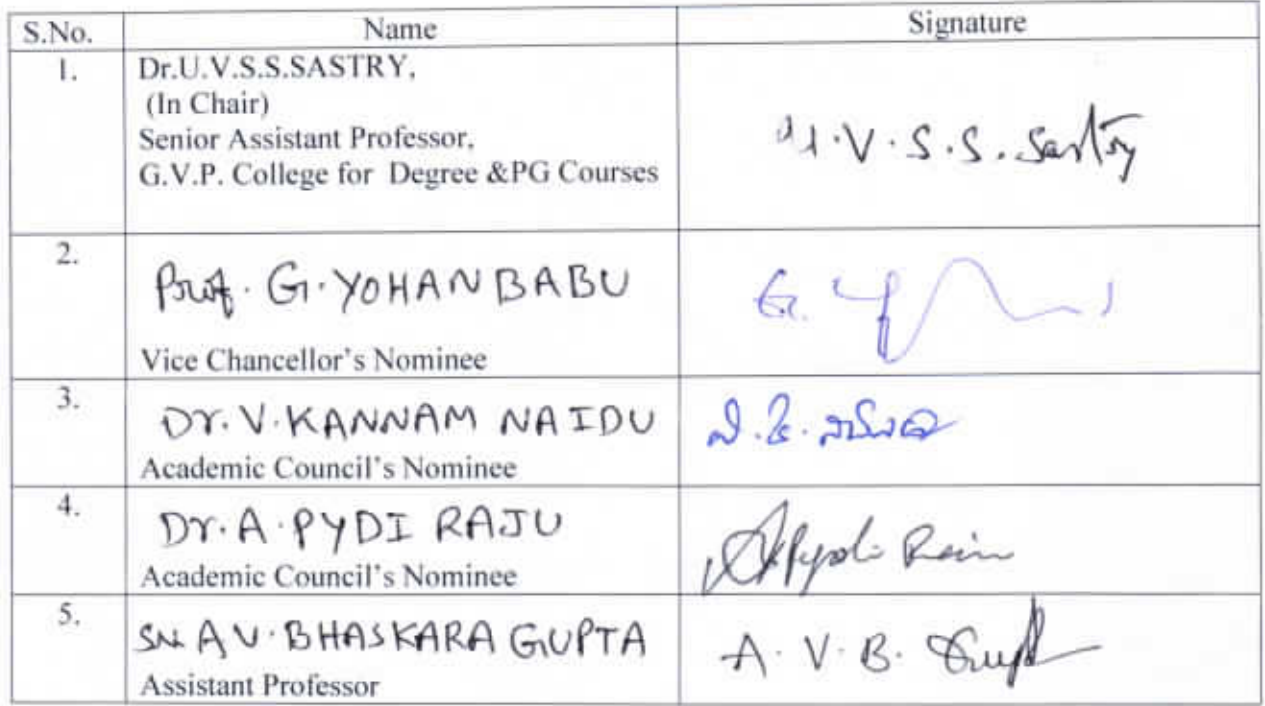 S.No. Name Signature
1. Dr.U.V.S.S.SASTRY,
(In Chair)
Senior Assistant Professor,
G.V.P. College for Degree &PG Courses
U.V.S.S. Sastry
2. Prof. G. YOHAN BABU
Vice Chancellor's Nominee
G.
3. Dr. V. KANNAM NAIDU
Academic Council's Nominee
4. Dr. A. PYDI RAJU
Academic Council's Nominee
A Pydi Raju
5. Sri. A V. BHASKARA GUPTA
Assistant Professor
A. V. B. Gupta